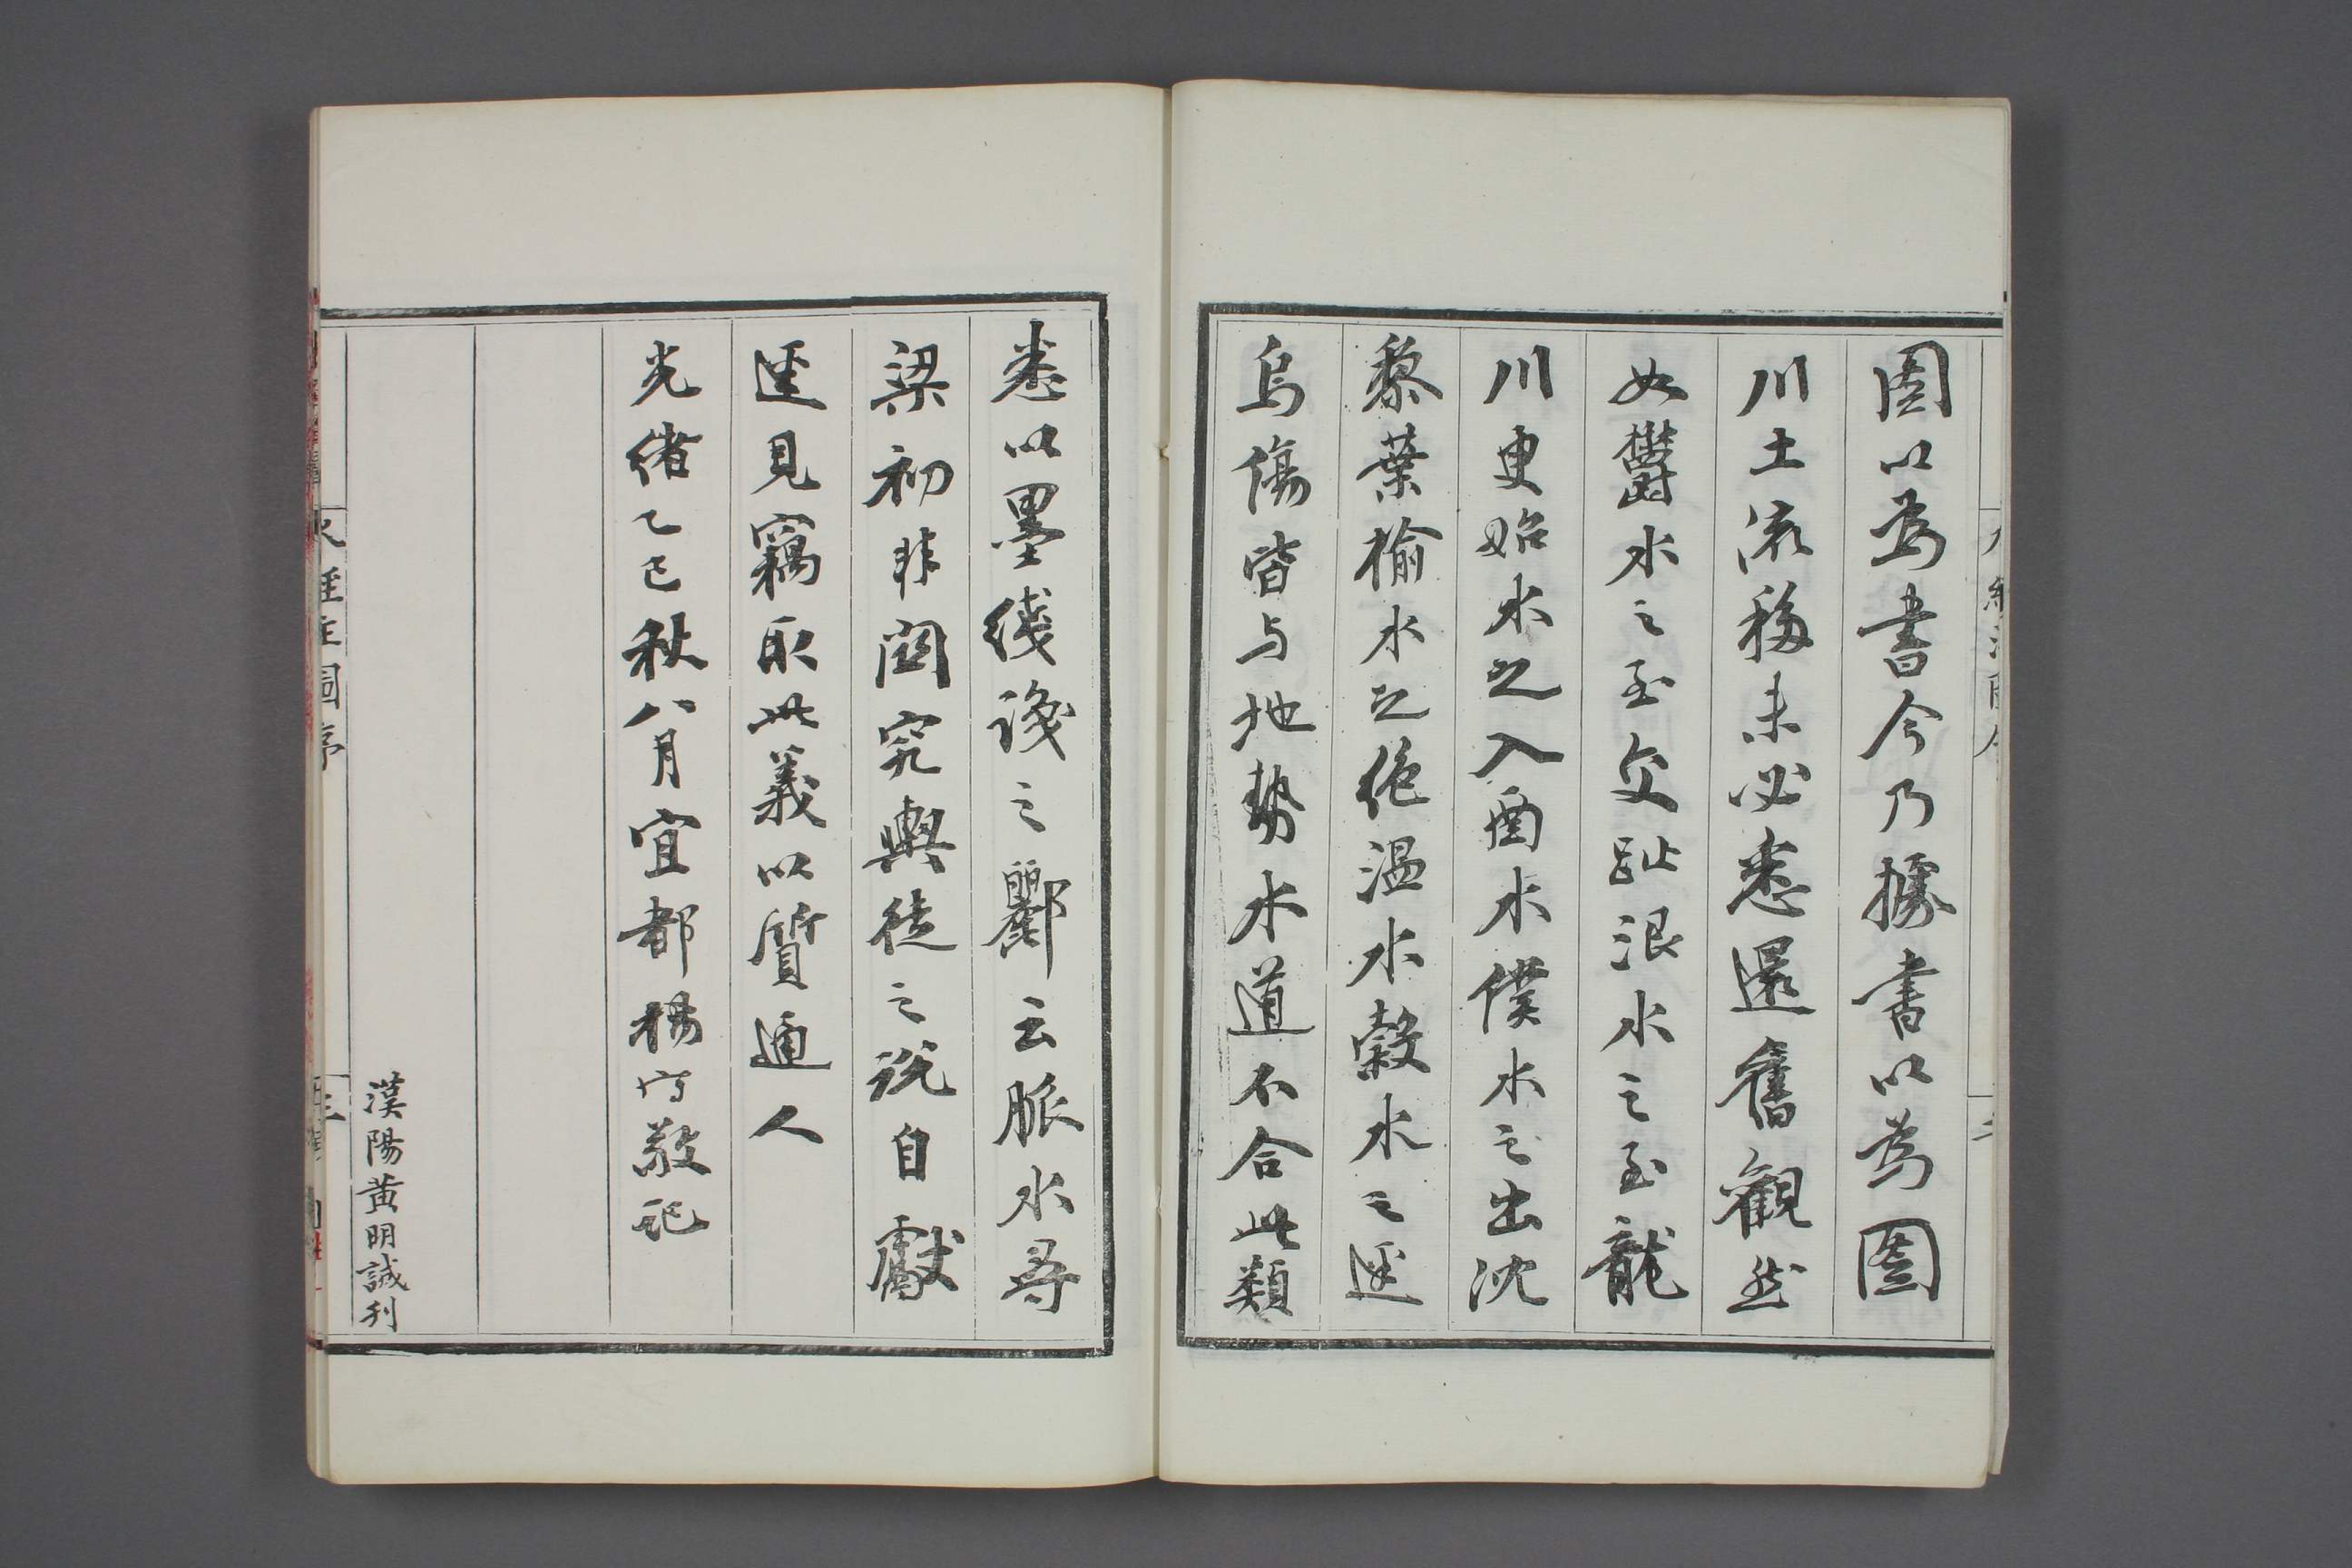 圖以為書今乃據書以為圖
川土流移未必悉還舊觀然
如鬱水之至交趾浪水之至龍
川更始水之入酉水僕水之出沈
黎葉榆水之絶溫水榖水之逕
烏傷皆与地勢水道不合此類
悉以墨綫識之酈云脈水尋
梁初非關究輿徒之說自獻
逕見竊取此義以質通人
光緒乙巳秋八月宜都楊守敬記
漢陽黃明誠刊
水經注圖序
三